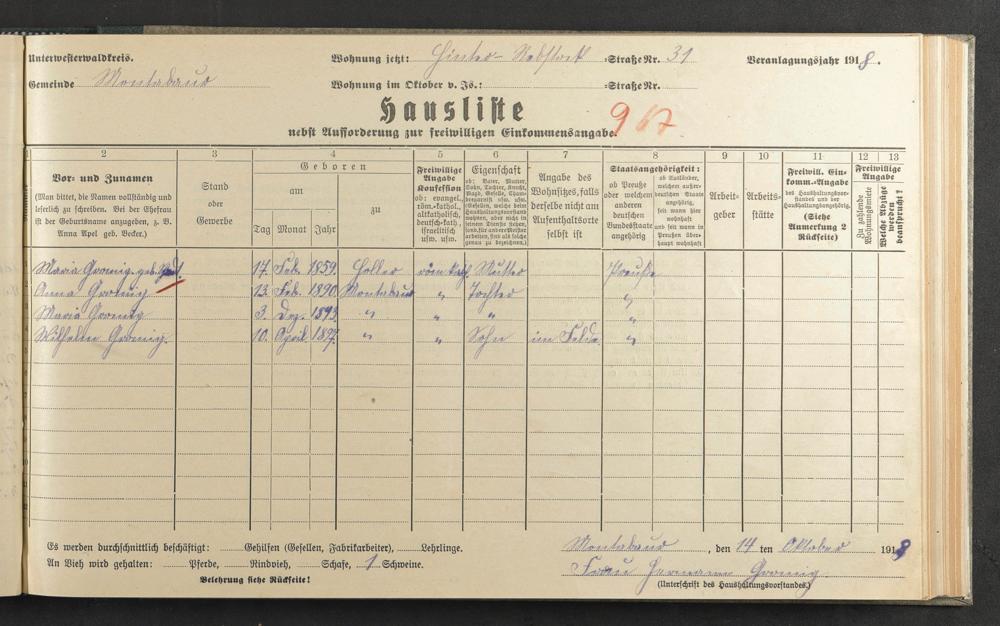 Unterwesterwaldkreis.
Wohnung jetzt: Hinter-Rebstock -Straße Nr. 31
Veranlagungsjahr 1918.
Gemeinde Montabaur
Wohnung im Oktober v. Js.: -Straße Nr.
Hausliste
967
nebst Aufforderung zur freiwilligen Einkommensangabe.
2 3 4 5 6 7 8 9 10 11 12 13
Vor- und Zunamen
(Man bittet, die Namen vollständig und
leserlich zu schreiben. Bei der Ehefrau
ist der Geburtsname anzugeben, z. B.
Anna Apel geb. Becker.)
Stand
oder
Gewerbe
Geboren
am
Tag Monat Jahr
zu
Freiwillige
Angabe
Konfession
ob: evangel.,
röm.-kathol.,
altkatholisch,
deutsch-kath.,
israelitisch
usw. usw.
Eigenschaft
ob: Vater, Mutter,
Sohn, Tochter, Knecht,
Magd, Geselle,
Angabe des
Wohnsitzes, falls
derselbe nicht am
Aufenthaltsorte
selbst ist
Staatsangehörigkeit:
ob Preuße
oder welchem
anderen
deutschen
Bundesstaate
angehörig
ob Ausländer,
welchem außer-
deutschen Staate
angehörig,
seit wann hier
wohnhaft
und seit wann in
Preußen über-
haupt wohnhaft
Arbeit-
geber
Arbeits-
stätte
Freiwill. Ein-
komm.-Angabe
des Haushaltungsvor-
standes und der
Haushaltungsangehörig.
(Siehe
Anmerkung 2
Rückseite)
Freiwillige
Angabe
Zu zahlende
Wohnungsmiete
Welche Abzüge
werden
beansprucht?
Maria Gromig geb. 17. Feb. 1859. Holler röm. kath. Mutter Preuße
Anna Gromig 13. Feb. 1890. Montabaur " Tochter "
Maria Gromig 3. Dez. 1893. " " " "
Wilhelm Gromig. 10. April 1897. " " Sohn im Felde. "
Es werden durchschnittlich beschäftigt: Gehilfen (Gesellen, Fabrikarbeiter), Lehrlinge.
An Vieh wird gehalten: Pferde, Rindvieh, Schafe, 1 Schweine.
Belehrung siehe Rückseite!
Montabaur, den 14 ten Oktober 191
Frau Hermann Gromig.
(Unterschrift des Haushaltungsvorstandes.)